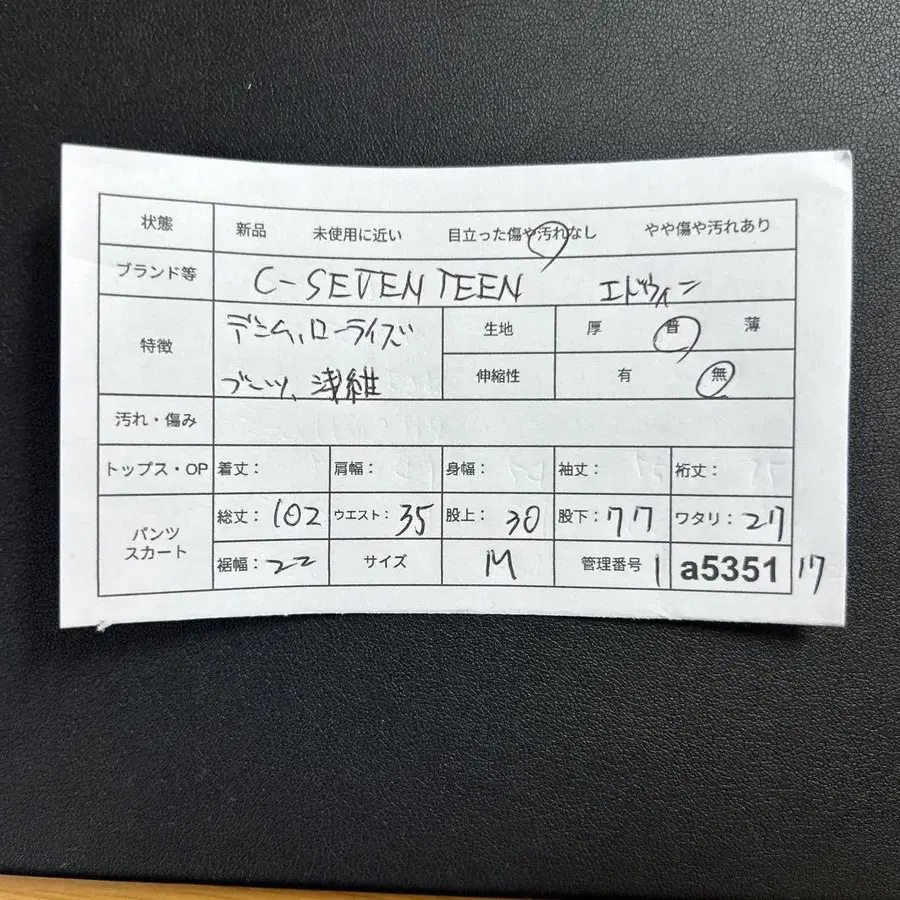 状態 新品 未使用に近い 目立った傷や汚れなし やや傷や汚れあり
ブランド等 C-SEVENTEEN エドウィン
特徴 デニム、ローライズ 生地 厚 普 薄
ブーツ、浅維 伸縮性 有 無
汚れ・傷み
トップス・OP 着丈: 肩幅: 身幅: 袖丈: 裄丈:
パンツ スカート 総丈: 102 ウエスト: 35 股上: 30 股下: 77 ワタリ: 27
裾幅: 22 サイズ M 管理番号 1 a5351 17